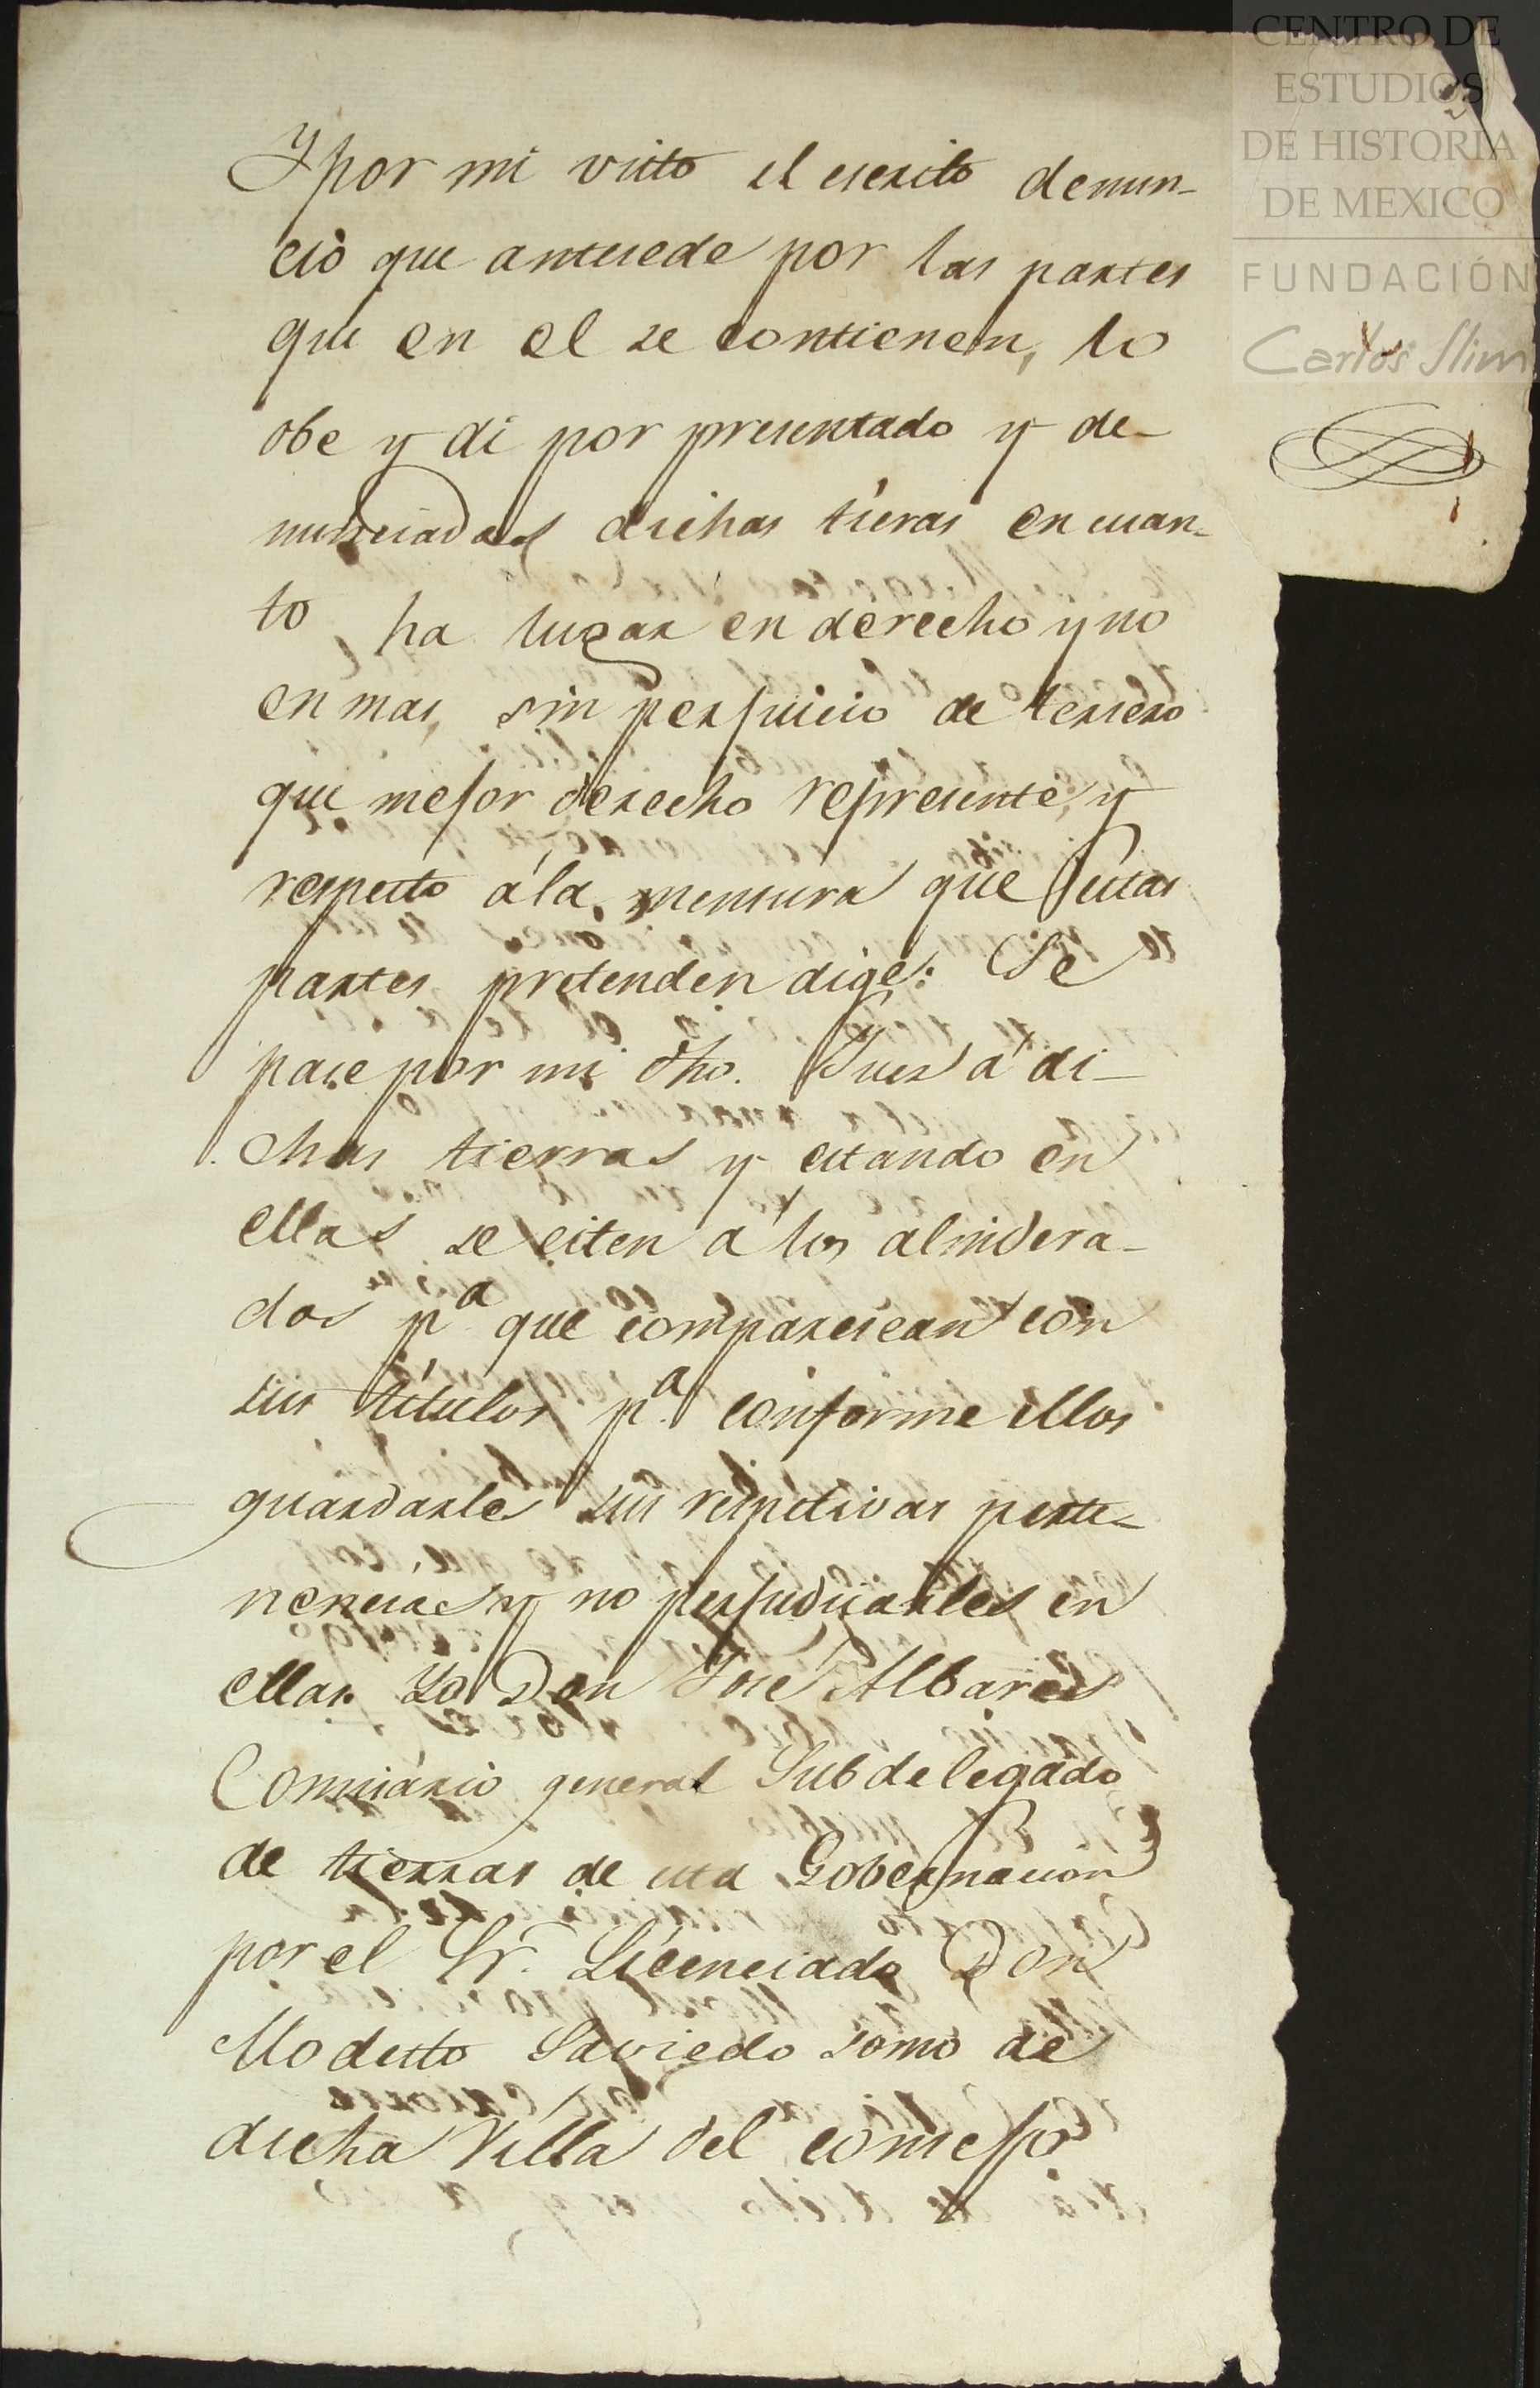 CENTRO DE
ESTUDIOS
DE HISTORIA
DE MEXICO
FUNDACIÓN
Carlos Slim
Y por mi visto el escrito denun-
cio que antesede por las partes
que en el se contienen, lo
obe y di por presentado y de-
nunciadas dichas tieras en cuan-
to ha lugar en derecho y no
en mas, sin perjuicio de tersero
que mejor derecho represente, y
respecto á la mensura que estas
partes pretenden dige: Se
pase por mi dho. Jues á di-
chas tierras y estando en
ellas se citen á los alindera-
dos pa. que comparescan con
sus titulos pa. conforme ellos
guardarles sus respetivas perte-
nencias y no perjudicarles en
ellas. Yo Don José Albares
Comisário general Subdelegado
de tierras de esta Gobernacion
por el Sr. Licenciado Don
Modesto Saviedo somo de
dicha Villa del